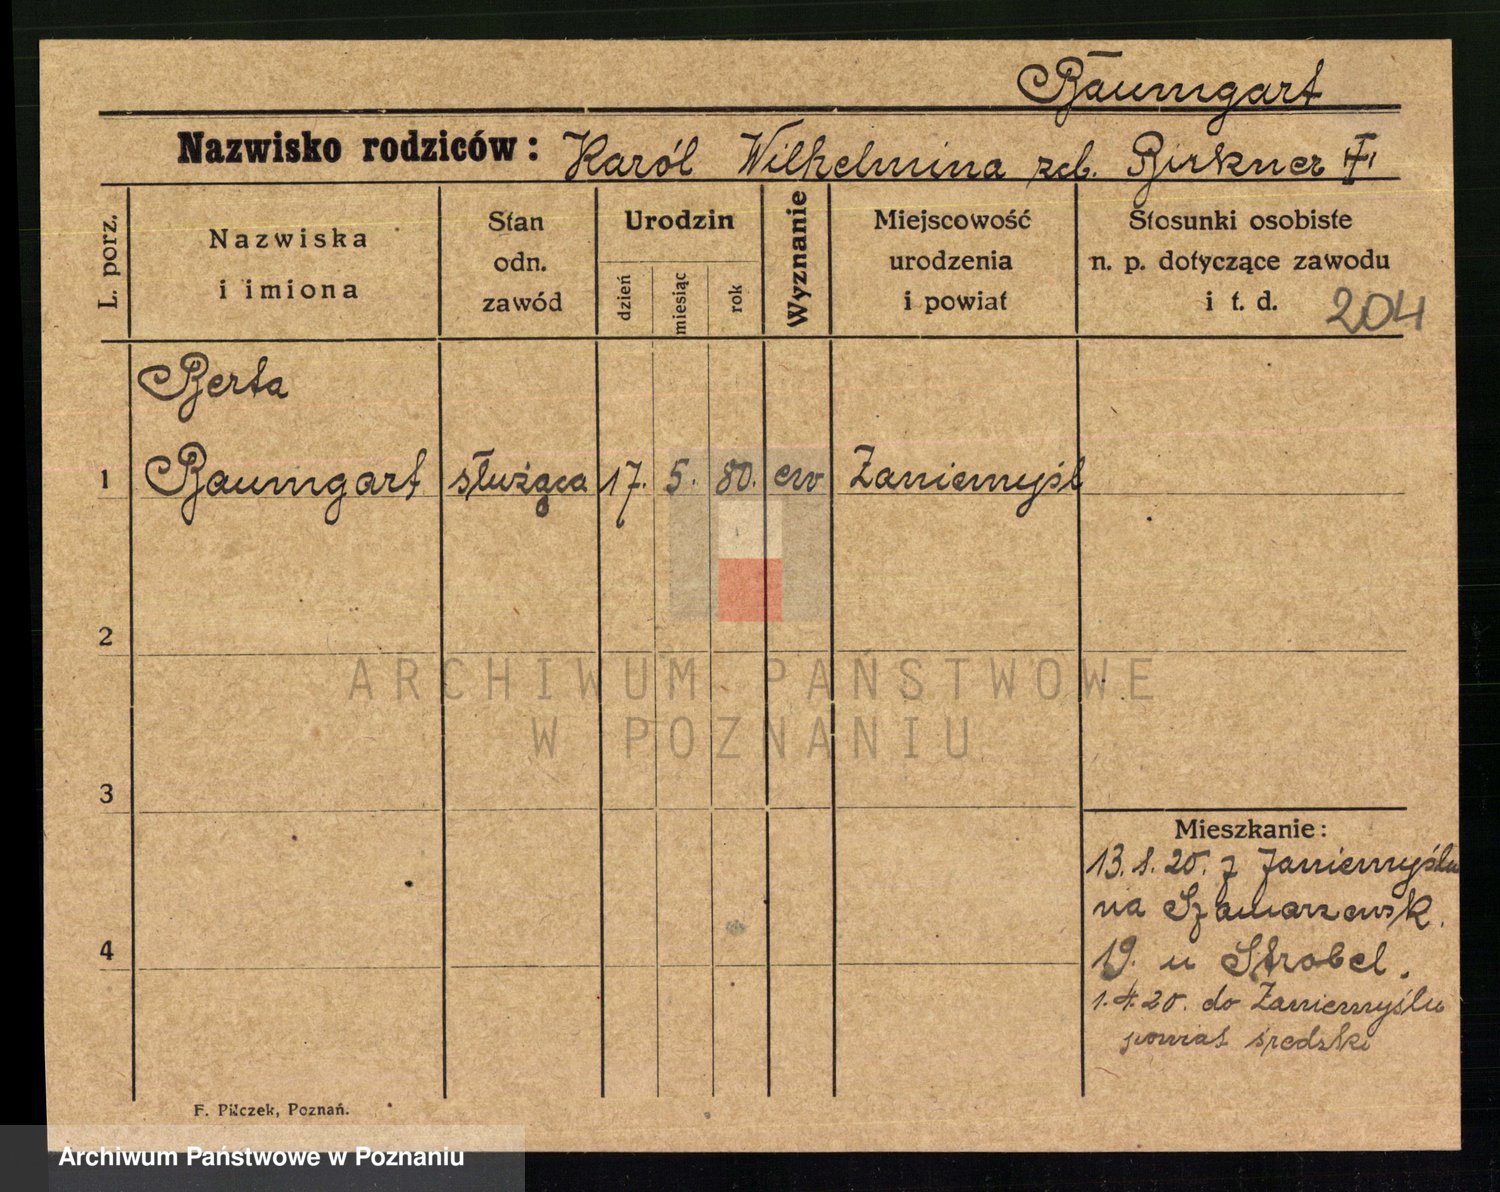 Baumgart
Nazwisko rodziców: Karól Wilhelmina zcb. Birkner
L. porz.
Nazwiska
i imiona
Stan
odn.
zawód
Urodzin
dzień
miesiąc
rok
Wyznanie
Miejscowość
urodzenia
i powiat
Stosunki osobiste
n. p. dotyczące zawodu
i t. d.
204
Berta
1 Baumgart służąca 17. 5. 80. ew Zaniemyśl
2
ARCHIWUM PAŃSTWOWE
W POZNANIU
3
Mieszkanie:
13. 1. 20. z Zaniemyślu
na Szamarzewsk.
4
19. u Strobel.
1.4.20. do Zaniemyślu
powiat średzki
F. Pilczek, Poznań.
Archiwum Państwowe w Poznaniu